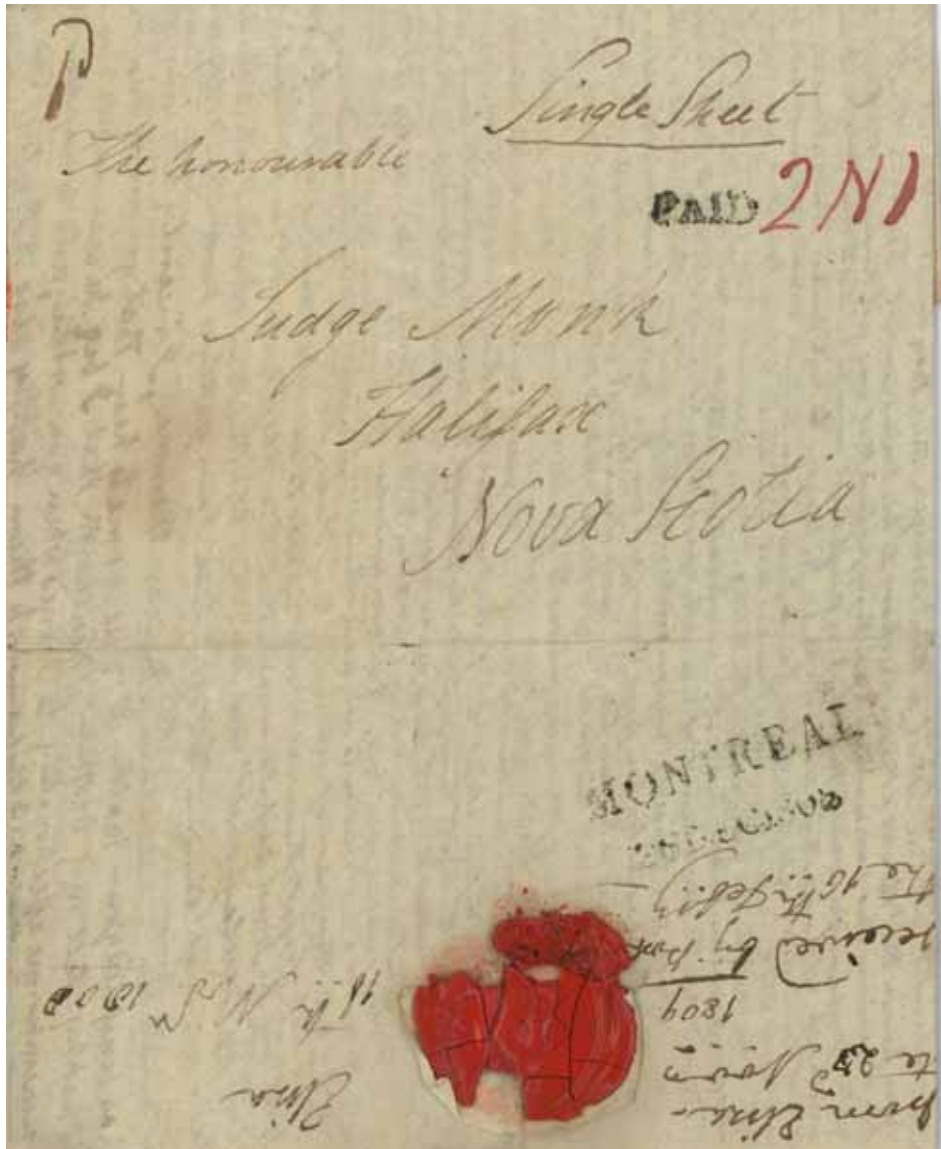 P
Single Sheet
The honourable
PAID 2N1
Judge Monk
Halifax
Nova Scotia
MONTREAL
from Eliza
Novr
1809
received by Post
the 16th Feb:ry
Eliza
16th Novr 1808